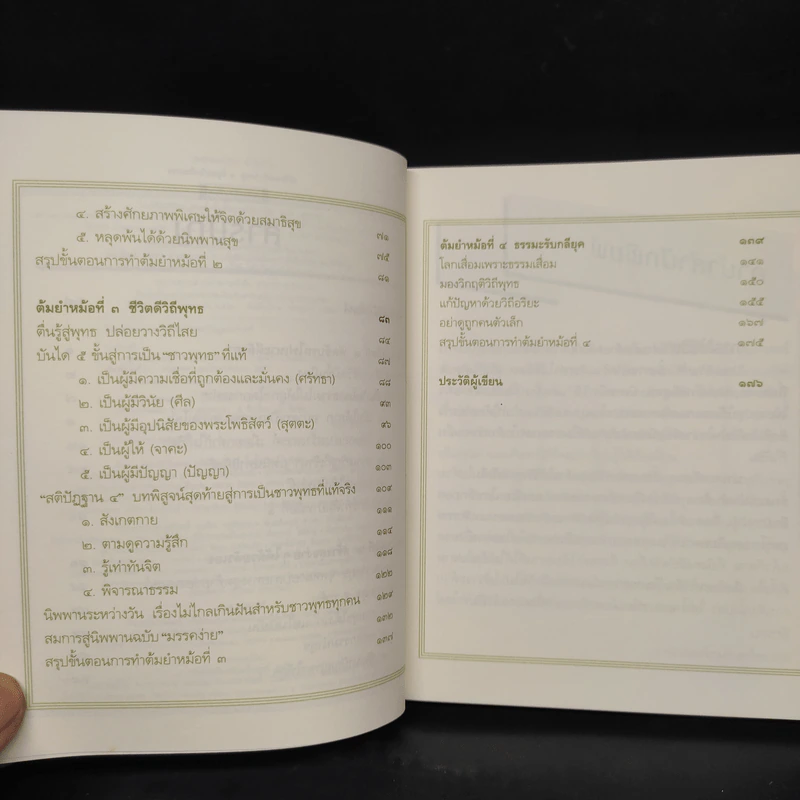 ๔. สร้างศักยภาพพิเศษให้จิตด้วยสมาธิสุข ๗๑
๕. หลุดพ้นได้ด้วยนิพพานสุข ๗๕
สรุปขั้นตอนการทำต้มยำหม้อที่ ๒ ๘๑
ต้มยำหม้อที่ ๓ ชีวิตดีวิถีพุทธ ๘๓
ตื่นรู้สู่พุทธ ปล่อยวางวิถีไสย ๘๔
บันได ๕ ขั้นสู่การเป็น "ชาวพุทธ" ที่แท้ ๘๗
๑. เป็นผู้มีความเชื่อที่ถูกต้องและมั่นคง (ศรัทธา) ๘๘
๒. เป็นผู้มีวินัย (ศีล) ๙๓
๓. เป็นผู้มีอุปนิสัยของพระโพธิสัตว์ (สุตตะ) ๙๖
๔. เป็นผู้ให้ (จาคะ) ๑๐๐
๕. เป็นผู้มีปัญญา (ปัญญา) ๑๐๓
"สติปัฏฐาน ๔" บทพิสูจน์สุดท้ายสู่การเป็นชาวพุทธที่แท้จริง ๑๐๙
๑. สังเกตกาย ๑๑๑
๒. ตามดูความรู้สึก ๑๑๔
๓. รู้เท่าทันจิต ๑๑๘
๔. พิจารณาธรรม ๑๒๒
นิพพานระหว่างวัน เรื่องไม่ไกลเกินฝันสำหรับชาวพุทธทุกคน ๑๒๙
สมการสู่นิพพานฉบับ "มรรคง่าย" ๑๓๒
สรุปขั้นตอนการทำต้มยำหม้อที่ ๓ ๑๓๗
ต้มยำหม้อที่ ๔ ธรรมะรับกลียุค ๑๓๙
โลกเสื่อมเพราะธรรมเสื่อม ๑๔๑
มองวิกฤติวิถีพุทธ ๑๕๐
แก้ปัญหาด้วยวิถีอริยะ ๑๕๕
อย่าดูถูกคนตัวเล็ก ๑๖๗
สรุปขั้นตอนการทำต้มยำหม้อที่ ๔ ๑๗๕
ประวัติผู้เขียน ๑๗๖